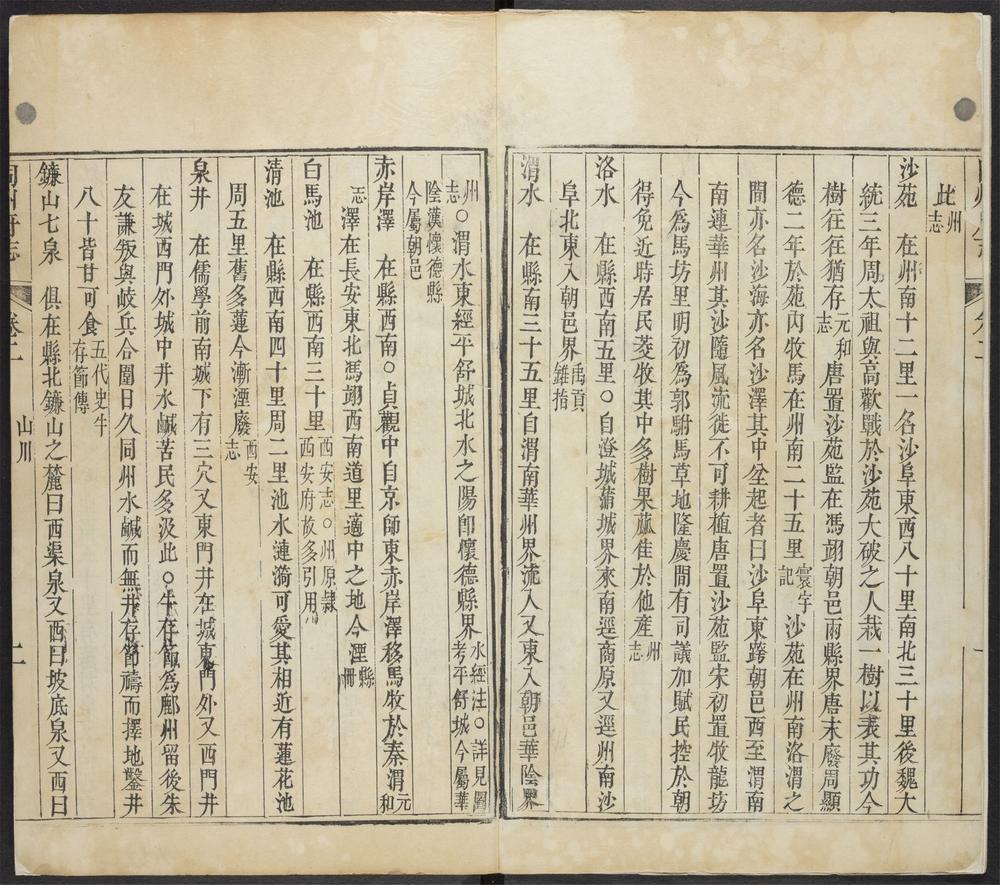 此州志
沙苑　在州南十二里一名沙阜東西八十里南北三十里後魏大
統三年周太祖與高歡戰於沙苑大破之人栽一樹以表其功今
樹往往猶存元和志唐置沙苑監在馮翊朝邑兩縣界唐末廢周顯
德二年於苑内牧馬在州南二十五里寰宇記　沙苑在州南洛渭之
間亦名沙海亦名沙澤其中坌起者曰沙阜東跨朝邑西至渭南
南連華州其沙隨風流徙不可耕植唐置沙苑監宋初置牧龍坊
今爲馬坊里明初爲郭駙馬草地隆慶間有司議加賦民控於朝
得免近時居民菱牧其中多樹果蓏佳於他產州志
洛水　在縣西南五里○自澄城蒲城界來南逕商原又逕州南沙
阜北東入朝邑界禹貢錐指
渭水　在縣南三十五里自渭南華州界流入又東入朝邑華陰界
州志○渭水東經平舒城北水之陽卽懷德縣界水經注○詳見圖考平舒城今屬華
陰漢懷德縣今屬朝邑
赤岸澤　在縣西南○貞觀中自京師東赤岸澤移馬牧於秦渭元和
志澤在長安東北馮翊西南道里適中之地今湮縣冊
白馬池　在縣西南三十里西安志○州原隷西安府故多引用
清池　在縣西南四十里周二里池水漣漪可愛其相近有蓮花池
周五里舊多蓮今漸湮廢西安志
泉井　在儒學前南城下有三穴又東門井在城東門外又西門井
在城西門外城中井水鹹苦民多汲此○牛存節爲鄜州留後朱
友謙叛與岐兵合圍日久同州水鹹而無井存節禱而擇地鑿井
八十皆甘可食五代史牛存節傳
鐮山七泉　俱在縣北鐮山之麓曰西渠泉又西曰坡底泉又西曰
同州府志
卷二
山川
二